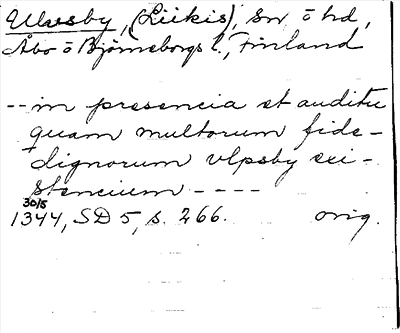 Ulvsby, (Liikis), sn o hd,
Åbo o Björneborgs l., Finland
-- in presencia et auditu
quam multorum fide-
dignorum vlpsby exi-
stencium ----
30/5
1344, SD 5, s. 266. orig.